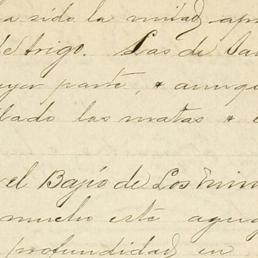 a sido la mitad, apr
de trigo. Las de Sa
yor parte, & aunq
lado las matas &
el Bajío de Los
mucho este agu
profundidad en